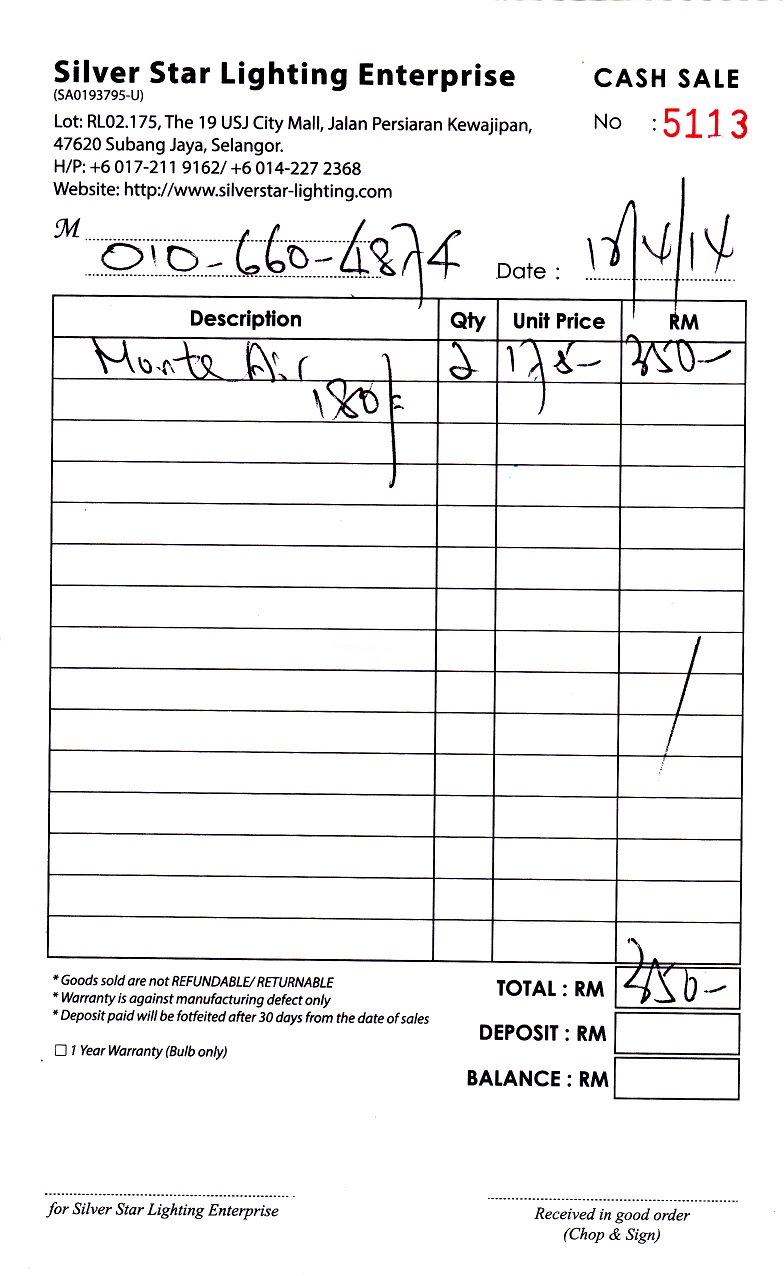 Silver Star Lighting Enterprise
(SA0193795-U)
CASH SALE
Lot: RL02.175, The 19 USJ City Mall, Jalan Persiaran Kewajipan,
47620 Subang Jaya, Selangor.
No : 5113
H/P: +6 017-211 9162/ +6 014-227 2368
Website: http://www.silverstar-lighting.com
M 010-660-4874
Date : /4/14
Description Qty Unit Price RM
Monte Air 2 175- 350-
180
TOTAL : RM 350-
DEPOSIT : RM
BALANCE : RM
* Goods sold are not REFUNDABLE/ RETURNABLE
* Warranty is against manufacturing defect only
* Deposit paid will be fotfeited after 30 days from the date of sales
☐ 1 Year Warranty (Bulb only)
for Silver Star Lighting Enterprise
Received in good order
(Chop & Sign)